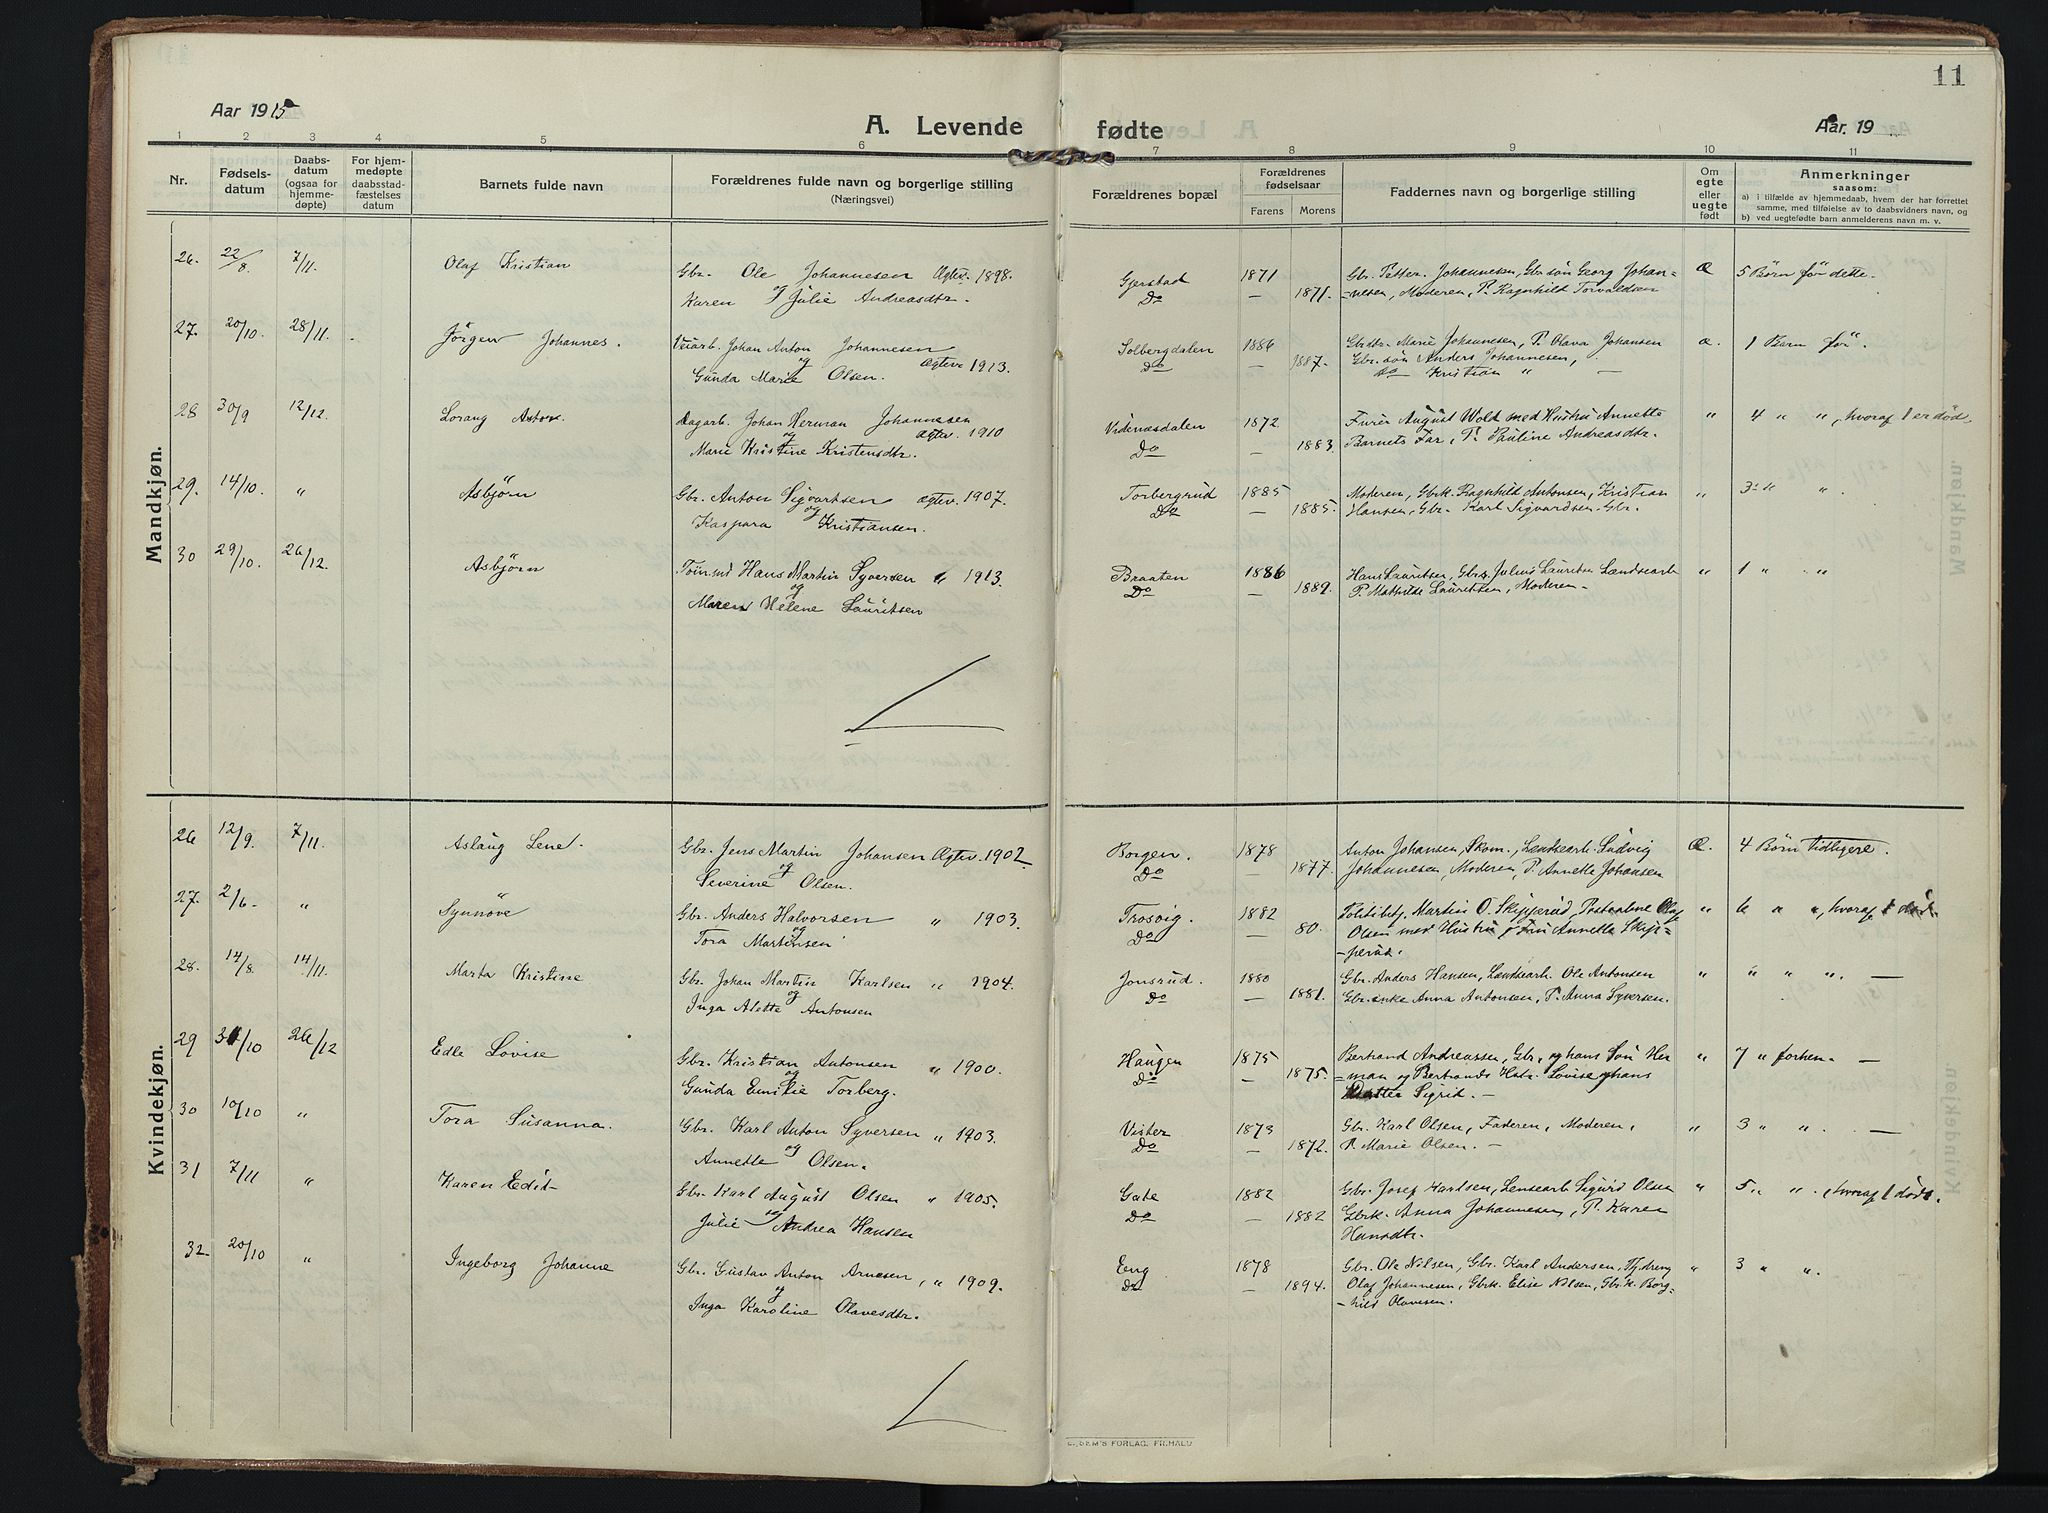 11
Aar 1915
A. Levende fødte
Aar 19
1 2 3 4 5 6 7 8 9 10 11
Nr.
Fødsels-
datum
Daabs-
datum
(ogsaa for
hjemme-
døpte)
For hjem-
medøpte
daabsstad-
fæstelses
datum
Barnets fulde navn
Forældrenes fulde navn og borgerlige stilling
(Næringsvei)
Forældrenes bopæl
Forældrenes
fødselsaar
Farens Morens
Faddernes navn og borgerlige stilling
Om
egte
eller
uegte
født
Anmerkninger
saasom:
a) i tilfælde av hjemmedaab, hvem der har forrettet
samme, med tilføielse av to daabsvidners navn, og
b) ved uegtefødte barn anmelderens navn m. v.
Mandkjøn.
26. 22/8. 7/11. Olaf Kristian Gbr. Ole Johannesen Ægtev. 1898. Gjerstad 1871 Gbr. Petter Johannesen, Gbr søn Georg Johan= Æ 5 Børn før dette.
og
Karen Julie Andreasdtr. Do — 1871. =nesen, Moderen, P. Ragnhild Torvaldsen
27. 20/10. 28/11. Jörgen Johannes. Veiarb. Johan Anton Johannesen Solbergdalen 1886 Gbrdtr. Marie Johannesen, P. Olava Johansen æ. 1 Barn før.
og Ægtev 1913.
Gunda Marie Olsen. Do — 1887. Gbr. søn Anders Johannesen,
Do Kristian " —
28 30/9 12/12. Lorang Anton. Dagarb. Johan Herman Johannesen Videnæsdalen 1872 Furer August Wold med Hustru Annette " 4 " ", hvoraf 1 er død
og Ægtev. 1910
Marie Kristine Kristensdtr. Do — 1883. Barnets Far, P. Pauline Andreasdtr.
29. 14/10. " Asbjörn Gbr. Anton Sigvartsen Ægtev. 1907. Torbergrud 1885 Moderen, Gbrk. Ragnhild Antonsen, Kristian " 3 " ".
og
Kaspara Kristiansen. Do — 1885. Hansen, Gbr. Karl Sigvardsen. Gbr.
30 29/10. 26/12. Asbjörn Hans Martin Syversen " 1913. Braaten 1886 Hans Lauritsen, Gbr., Julius Lauritsen Lændsearb " 1 " "
og
Maren Helene Lauritsen Do — 1889. P. Mathilde Lauritsen, Moderen —
Kvindekjøn.
26 12/9. 7/11. Aslaug Lene. Gbr. Jens Martin Johansen Ægtev. 1902 Borgen. 1878 Anton Johansen, Skom., Lændsearb. Ludvig Æ. 4 Børn tidligere.
og
Severine Olsen. Do — 1877. Johannesen, Moderen, P. Annette Johansen
27. 2/6. " Synnöve Gbr. Anders Halvorsen " 1903. Trosvig. 1882 Politibetj. Martin O. Skipperud, Olaf " 6 " ", hvoraf 1 død.
og
Tora Martinsen Do — 80. Olsen med Hustru og Fru Annette Skip=
=perud.
28. 14/8. 14/11. Marta Kristine Gbr. Johan Martin Karlsen " 1904. Jonsrud. 1880 Gbr. Anders Hansen, Lændsearb. Ole Antonsen " " " ". —
og
Inga Alette Antonsen Do — 1881. Gbr. enke Anna Antonsen, P. Anna Syversen.
29 31/10 26/12 Edle Lovise Gbr. Kristian Antonsen " 1900. Haugen 1875 Bertrand Andreassen, Gbr, og hans Søn Her " 7 " forhen —
og
Gunda Emilie Torberg. Do — 1875. =man og Bertrands Hstr. Lovise og hans
Datter Sigrid. —
30 10/10 " Tora Susanna. Gbr. Karl Anton Syversen " 1903. Vister 1873 Gbr. Karl Olsen, Faderen, Moderen, " 3 " ". —
og
Annette Olsen. Do — 1872. P. Marie Olsen. —
31 7/11 " Karen Edit Gbr. Karl August Olsen " 1905. Gate 1882 Gbr. Josef Karlsen, Lensearb Sigurd Olsen " 5 " ", hvoraf 1 død.
og
Julie Andrea Hansen Do — 1882 Gbrk. Anna Johannesen, P. Karen
Hansdtr.
32 20/10 " Ingeborg Johanne Gbr. Gustav Anton Arnesen, " 1909. Eng 1878 Gbr. Ole Nilsen, Gbr. Karl Andersen, " 3 " ".
og
Inga Karoline Olavesdtr. Do — 1894. Olaf Johannesen, Gbrk. Elise Nilsen, Gbr. k. Borg=
=hild Olavesen.
SEM'S FORLAG. FR.HALD